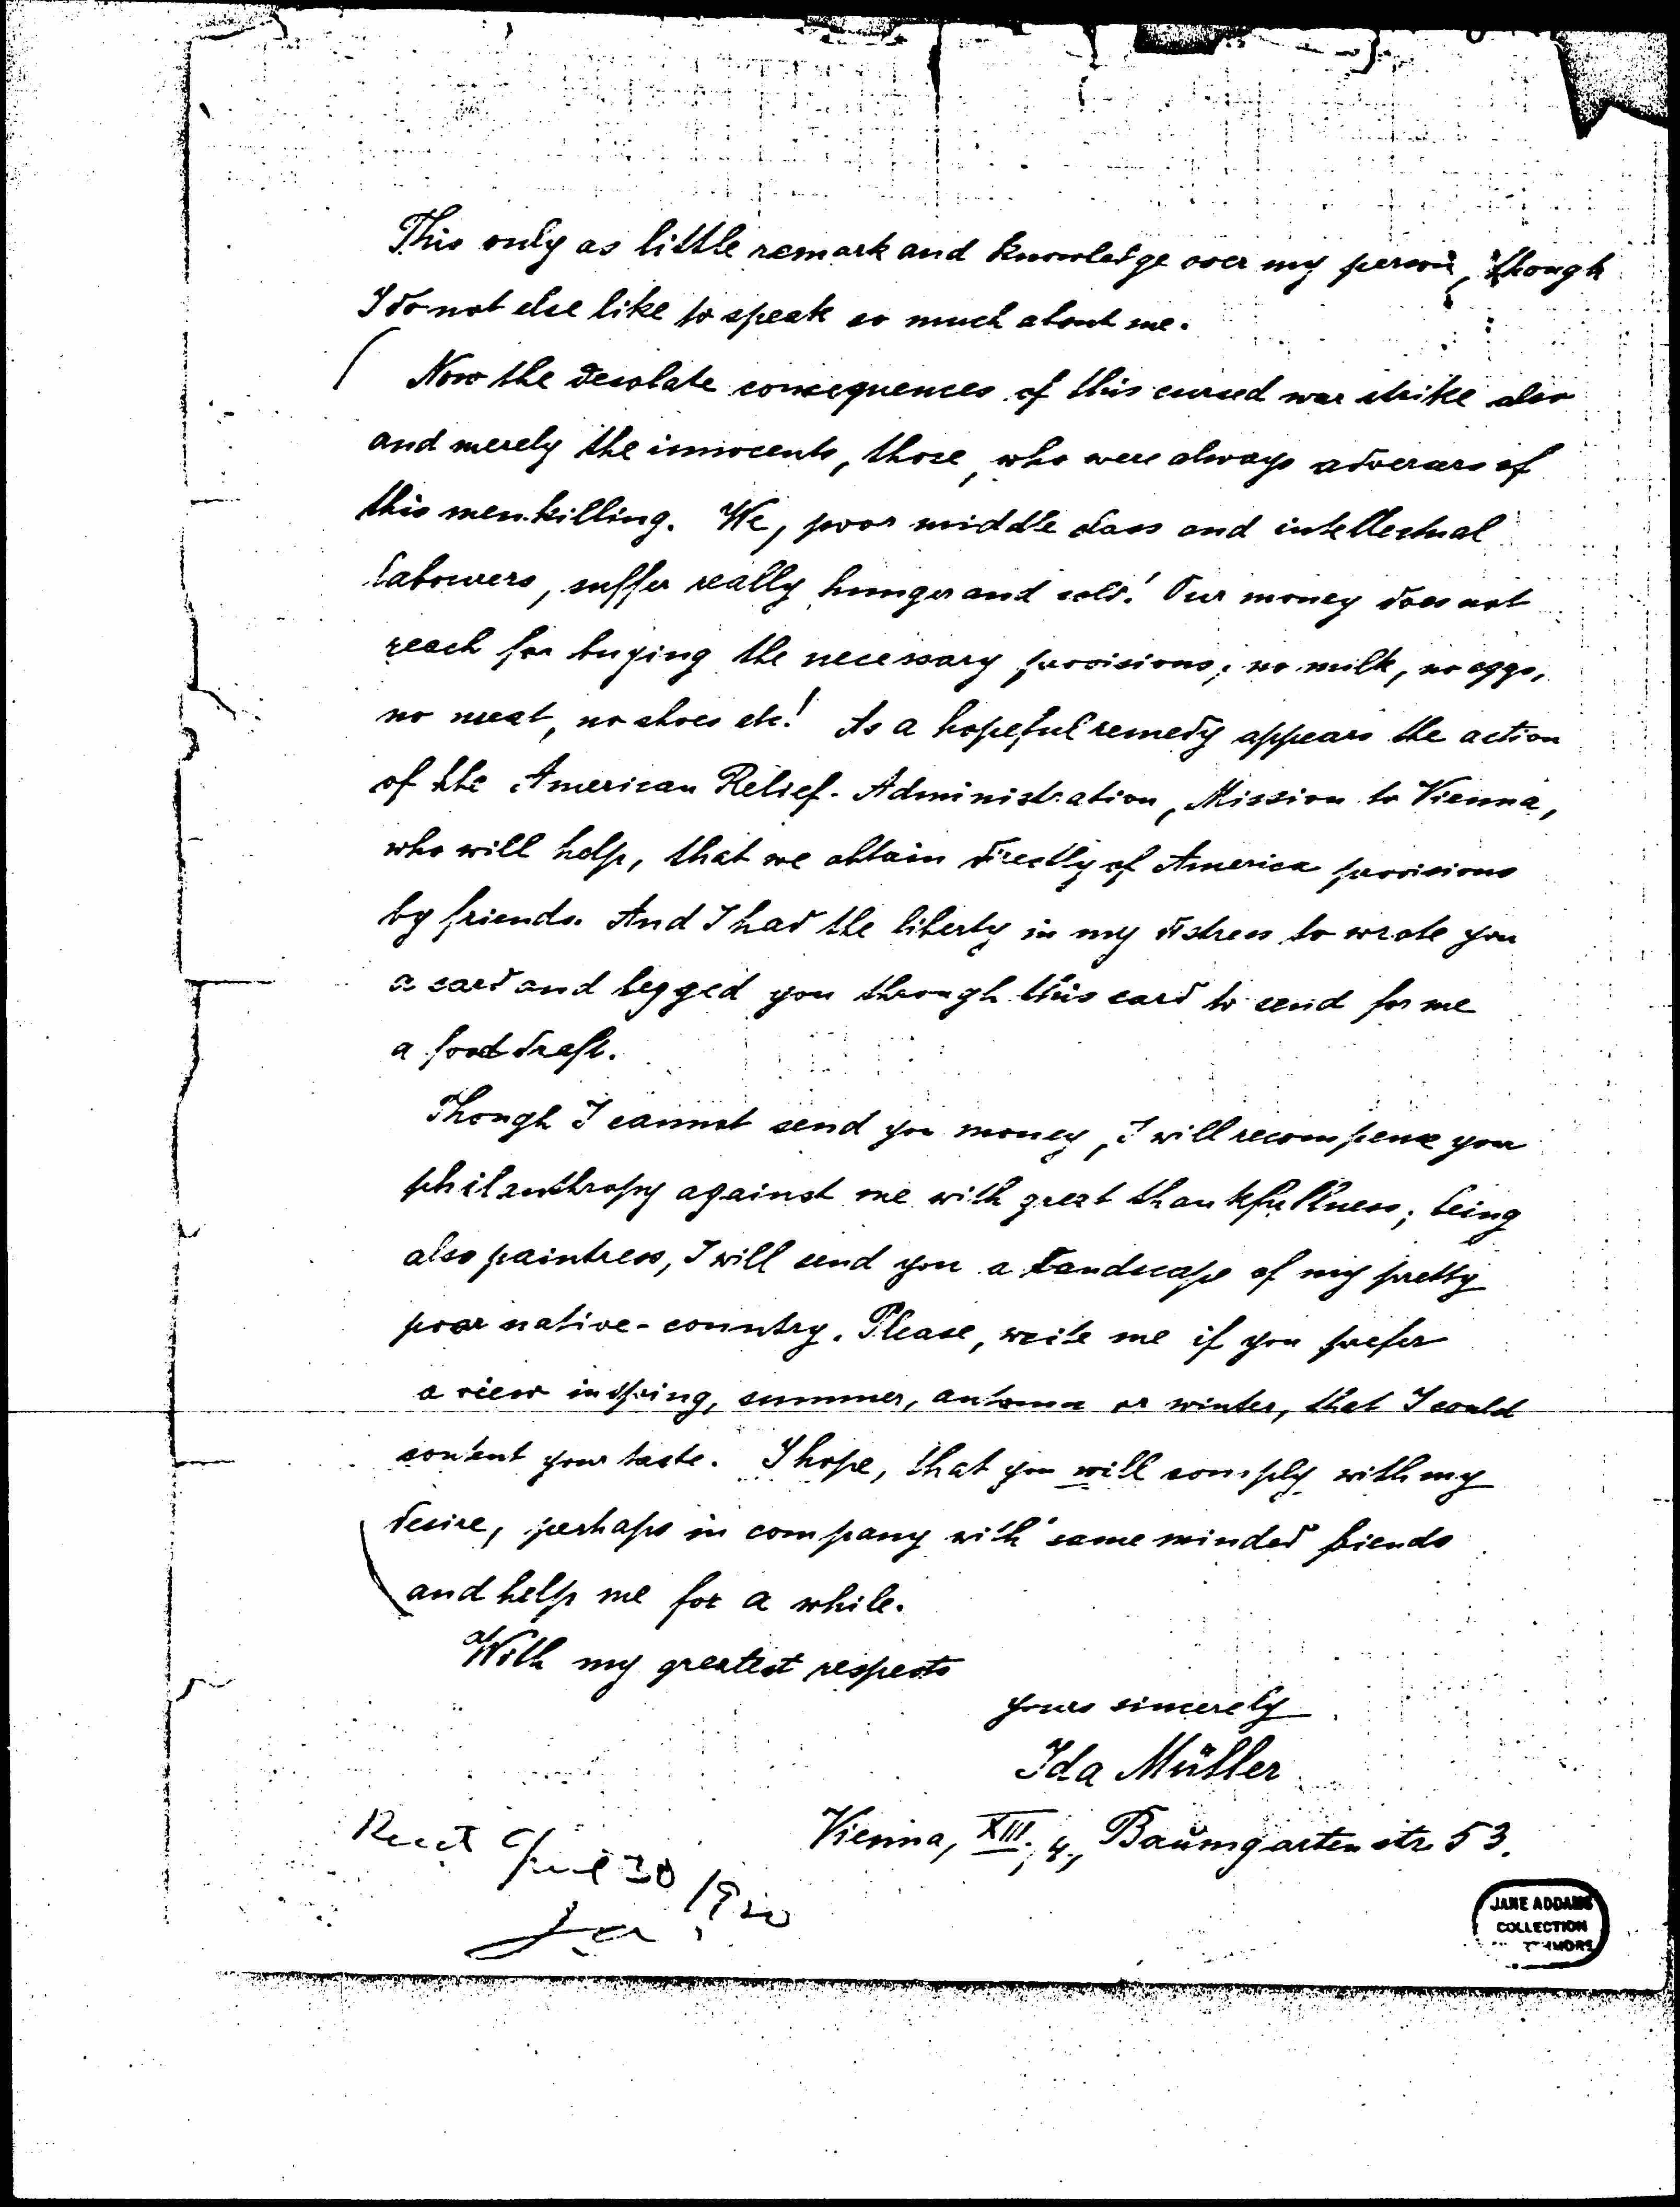 This only as little remark and knowledge over my person, though
I do not else like to speak so much about me.
Now the desolate consequences of this cursed war strike also
and merely the innocents, those, who were always adversars of
this menkilling. We, poor middle class and intellectual
labourers, suffer really hunger and cold! Our money does not
reach for buying the necessary provisions; no milk, no eggs,
no meat, no shoes etc! As a hopeful remedy appears the action
of the American Relief-Administration, Mission to Vienna,
who will help, that we obtain directly of America provisions
by friends. And I had the liberty in my distress to wrote you
a card and begged you through this card to send for me
a food draft.
Though I cannot send you money, I will recompense your
philanthropy against me with great thankfullness; being
also paintress, I will send you a landscape of my pretty
poor native-country. Please, write me if you prefer
a view in spring, summer, autumn or winter, that I could
content your taste. I hope, that you will comply with my
desire, perhaps in company with same minded friends
and help me for a while.
With my greatest respects
yours sincerely
Ida Müller
Vienna, XIII, 4, Baumgartenstr. 53.
30 1920
JANE ADDAMS
COLLECTION